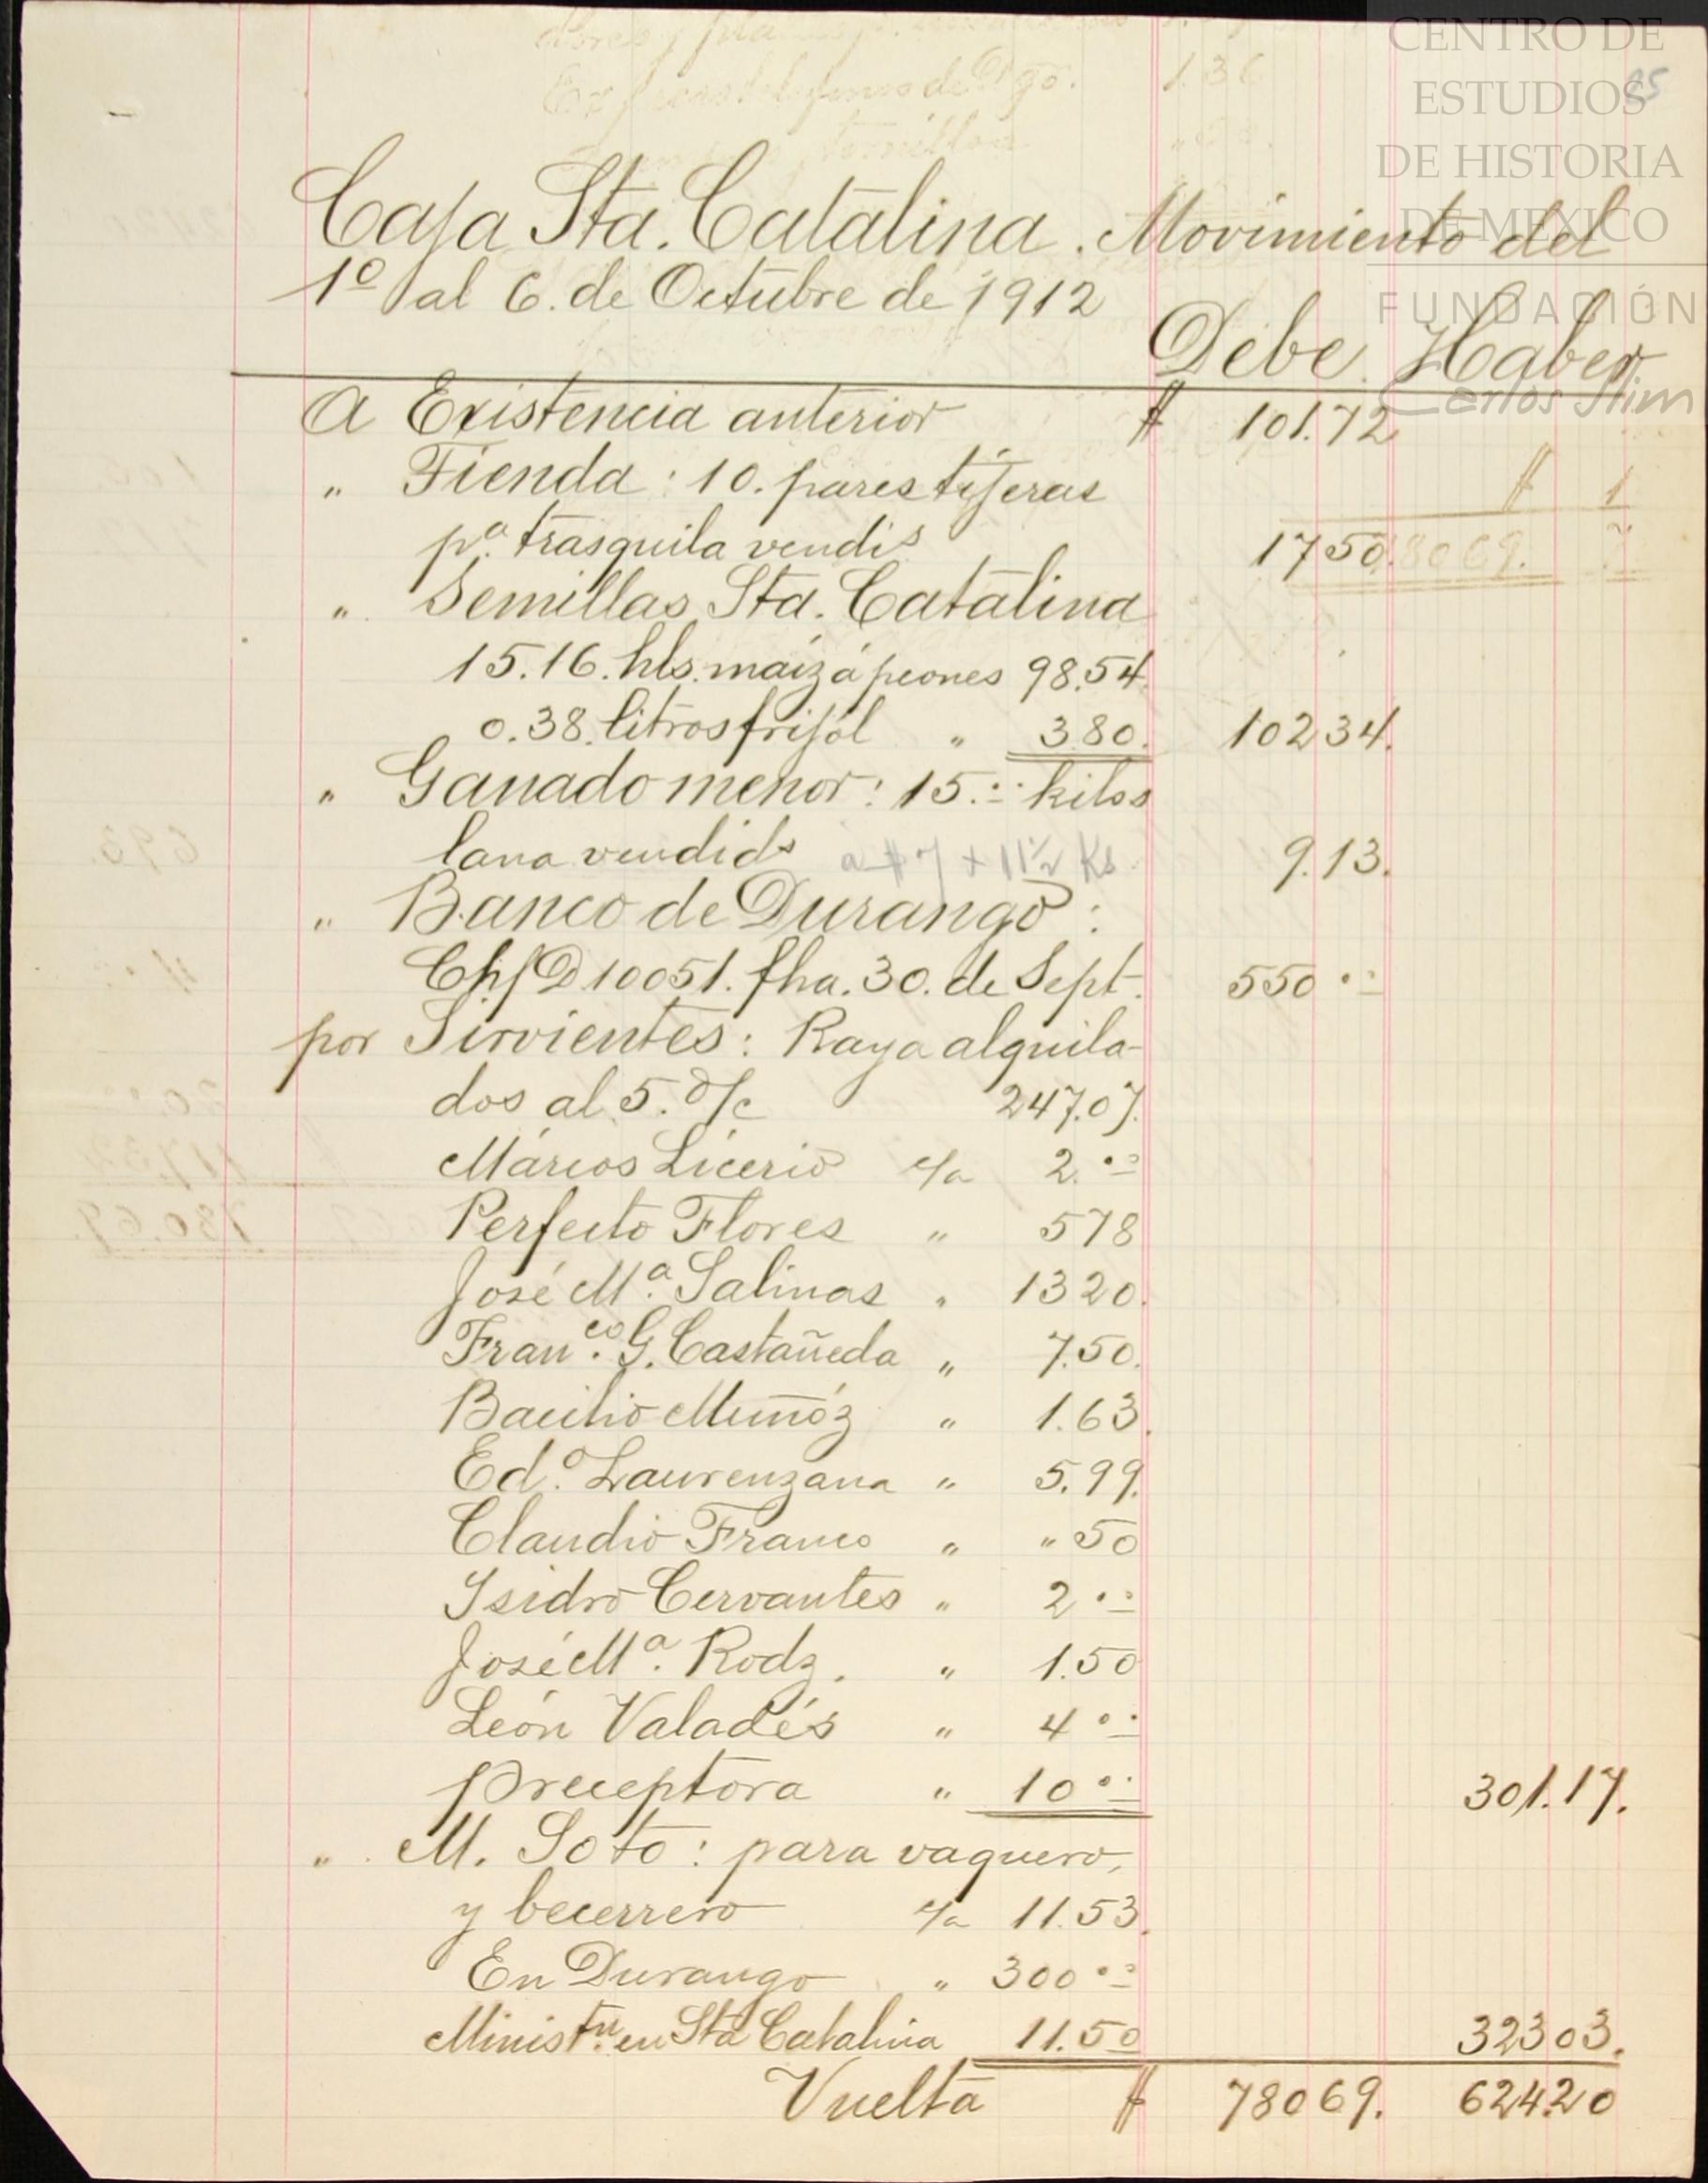 CENTRO DE
ESTUDIOS
DE HISTORIA
DE MEXICO
FUNDACIÓN
Carlos Slim
95
Caja Sta. Catalina. Movimiento del
1º al 6. de Octubre de 1912
Debe Haber
A Existencia anterior $ 101.72
" Tienda: 10. pares tijeras
pª trasquila vendis 1750.
" Semillas Sta. Catalina
15.16. hls. maiz á peones 98.54.
0.38. litros frijol " 3.80. 10234.
" Ganado menor: 15.00 kilos
lana vendids a $7 + 11½ Ks 9.13.
" Banco de Durango:
Ch/D 10051. fha. 30. de Sept. 550 00
por Sirvientes: Raya alquila-
dos al 5. d/c 247.07.
Márcos Licerio c/a 2.00
Perfecto Flores " 578
José Mª. Salinas " 1320.
Franco. G. Castañeda " 7.50.
Bacilio Muñóz " 1.63.
Edo. Laurenzana " 5.99.
Claudio Franco " " 50
Isidro Cervantes " 2 00
José Mª. Rodz. " 1.50
León Valadés " 4 00
Preceptora " 10 00 301.17.
" M. Soto: para vaquero,
y becerrero c/a 11.53.
En Durango " 300 00
Ministn. en Sta Catalina 11.50 32303.
Vuelta $ 78069. 62420